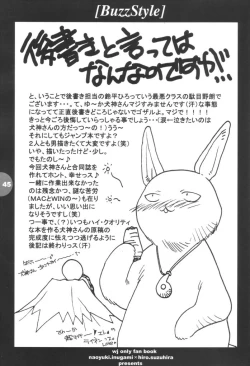 [BuzzStyle]
後書きと言っては
なんなのですが…
と、いうことで後書き担当の鈴平ひろっていう最悪クラスの駄目野郎で
ございます・・・。て、ゆ～か犬神さんマジすみませんです(汗)な事態
になってて正直後書きどころじゃないでゴザルよ。マジで！！！！
きっと今ごろ後悔していらっしゃる事でしょう・・(涙←泣きたいのは
犬神さんの方だっつ～の！)うう～
それにしてもジャンプ本ですよ？
2人とも男描きたくて大変ですよ(笑)
いや、描いたっだけど・少し。
でもたのし～♪
今回犬神さんと合同誌を
作れてホント、幸せっス♪
一緒に作業出来なかった
のは残念かつ、謎な苦労
(MACとWINの～)も在り
ましたが、いい思い出に
なりそうです(笑)
つ～事で、(？)いつもハイ・クオリティ
な本を作る犬神さんの原稿の
完成度に怯えつつ逃げるように
後記は終わりっス(汗)
45
wj only fan book
naoyuki.inugami×hiro.suzuhira
presents